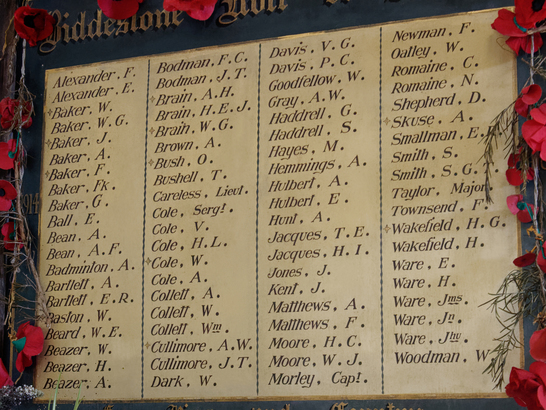 Biddestone Roll of
1914
Alexander, F.
Alexander, E.
✧Baker, W.
Baker, W. G.
✧Baker, J.
Baker, A.
✧Baker, F.
Baker, Fk.
Baker, G.
Ball, E.
Bean, A.
Bean, A. F.
Badminton, A.
Bartlett, A.
Bartlett, E. R.
✧Baston, W.
Beard, W. E.
Beazer, W.
Beazer, H.
Beazer, A.
Bodman, F. C.
Bodman, J. T.
✧Brain, A. H.
Brain, H. E. J.
✧Brain, W. G.
Brown, A.
✧Bush, O.
Bushell, T.
Careless, Lieut.
Cole, Sergt.
Cole, V.
Cole, H. L.
✧Cole, W.
Cole, A.
Collett, A.
Collett, W.
Collett, Wm
✧Cullimore, A. W.
Cullimore, J. T.
Dark, W.
Davis, V. G.
Davis, P. C.
Goodfellow, W.
Gray, A. W.
Haddrell, G.
Haddrell, S.
Hayes, M.
Hemmings, A.
Hulbert, A.
Hulbert, E.
Hunt, A.
Jacques, T. E.
Jacques, H. I.
Jones, J.
Kent, J.
Matthews, A.
Matthews, F.
Moore, H. C.
Moore, W. J.
Morley, Capt.
Newman, F.
Oatley, W.
Romaine, C.
Romaine, N.
Shepherd, D.
✧Skuse, A.
Smallman, E.
Smith, S.
Smith, S. G.
Taylor, Major.
Townsend, F.
✧Wakefield, H. G.
Wakefield, H.
Ware, E.
Ware, H.
Ware, Jms.
Ware, Jn.
Ware, Jhn.
Woodman, W.